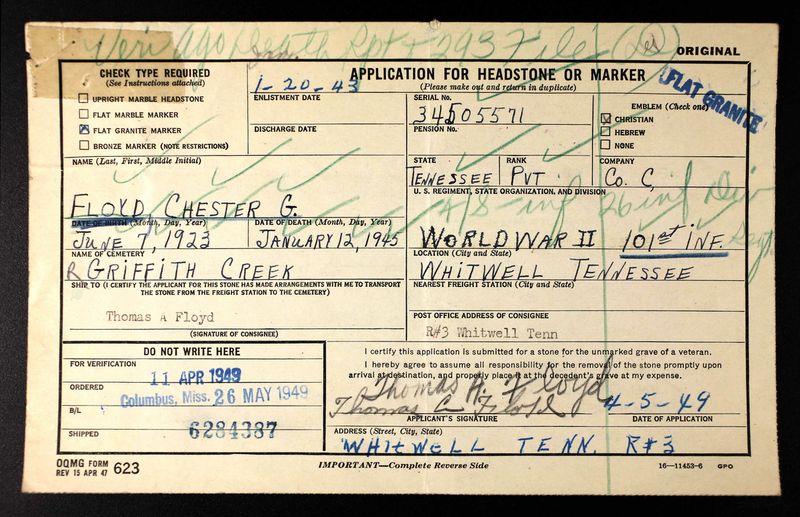 Veri Ago Death Rpt + 293 File
ORIGINAL
CHECK TYPE REQUIRED
(See Instructions attached)
UPRIGHT MARBLE HEADSTONE
FLAT MARBLE MARKER
FLAT GRANITE MARKER
BRONZE MARKER (NOTE RESTRICTIONS)
APPLICATION FOR HEADSTONE OR MARKER
(Please make out and return in duplicate)
1-20-43
ENLISTMENT DATE
DISCHARGE DATE
SERIAL No.
34505571
PENSION No.
EMBLEM (Check one)
CHRISTIAN
HEBREW
NONE
FLAT GRANITE
NAME (Last, First, Middle Initial)
FLOYD, CHESTER G.
STATE
TENNESSEE
RANK
PVT
COMPANY
CO. C,
U. S. REGIMENT, STATE ORGANIZATION, AND DIVISION
inf 26 inf Div
DATE OF BIRTH (Month, Day, Year)
JUNE 7, 1923
DATE OF DEATH (Month, Day, Year)
JANUARY 12, 1945
WORLD WAR II 101st INF.
NAME OF CEMETERY
GRIFFITH CREEK
LOCATION (City and State)
WHITWELL TENNESSEE
SHIP TO (I CERTIFY THE APPLICANT FOR THIS STONE HAS MADE ARRANGEMENTS WITH ME TO TRANSPORT THE STONE FROM THE FREIGHT STATION TO THE CEMETERY)
Thomas A Floyd
(SIGNATURE OF CONSIGNEE)
NEAREST FREIGHT STATION (City and State)
POST OFFICE ADDRESS OF CONSIGNEE
R#3 Whitwell Tenn
DO NOT WRITE HERE
FOR VERIFICATION
11 APR 1949
ORDERED
Columbus, Miss. 26 MAY 1949
B/L
SHIPPED
6284387
I certify this application is submitted for a stone for the unmarked grave of a veteran.
I hereby agree to assume all responsibility for the removal of the stone promptly upon
arrival at destination, and properly place it at the decedent's grave at my expense.
Thomas A. Floyd
Thomas A Floyd
4-5-49
APPLICANT'S SIGNATURE
DATE OF APPLICATION
ADDRESS (Street, City, State)
WHITWELL TENN. R#3
OQMG FORM
REV 15 APR 47 623
IMPORTANT—Complete Reverse Side
16—11453-6 GPO